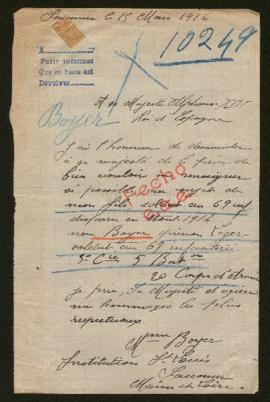 Saumur le 15 Mars 1916
10249
A
Pedir informes
Que se haga así
Devolver
Boyer
A sa Majesté Alphonse XIII
Roi d'Espagne
J'ai l'honneur de demander
à sa majesté de
bien vouloir me renseigner
si possible au sujet de
mon fils soldat au 69 inf
disparu en Août 1914
nom Boyer prénom
soldat au 69 infanterie
5e Cie
20 Corps d'Armée
Je prie sa Majesté d'agréer
mes hommages les plus
respectueux
Hecho
Mme Boyer
Institution St Louis
Saumur
Maine et Loire